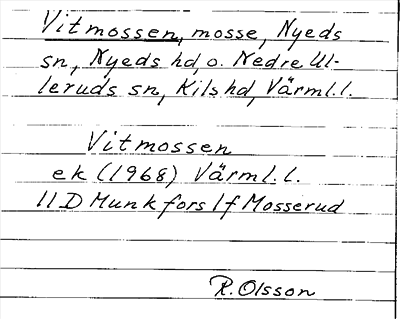 Vitmossen, mosse, Nyeds
sn, Nyeds hd, o. Nedre Ul-
leruds sn, Kils hd, Värml.l.
Vitmossen
ek (1968) Värml.l.
11D Munkfors 1f Mosserud
R. Olsson